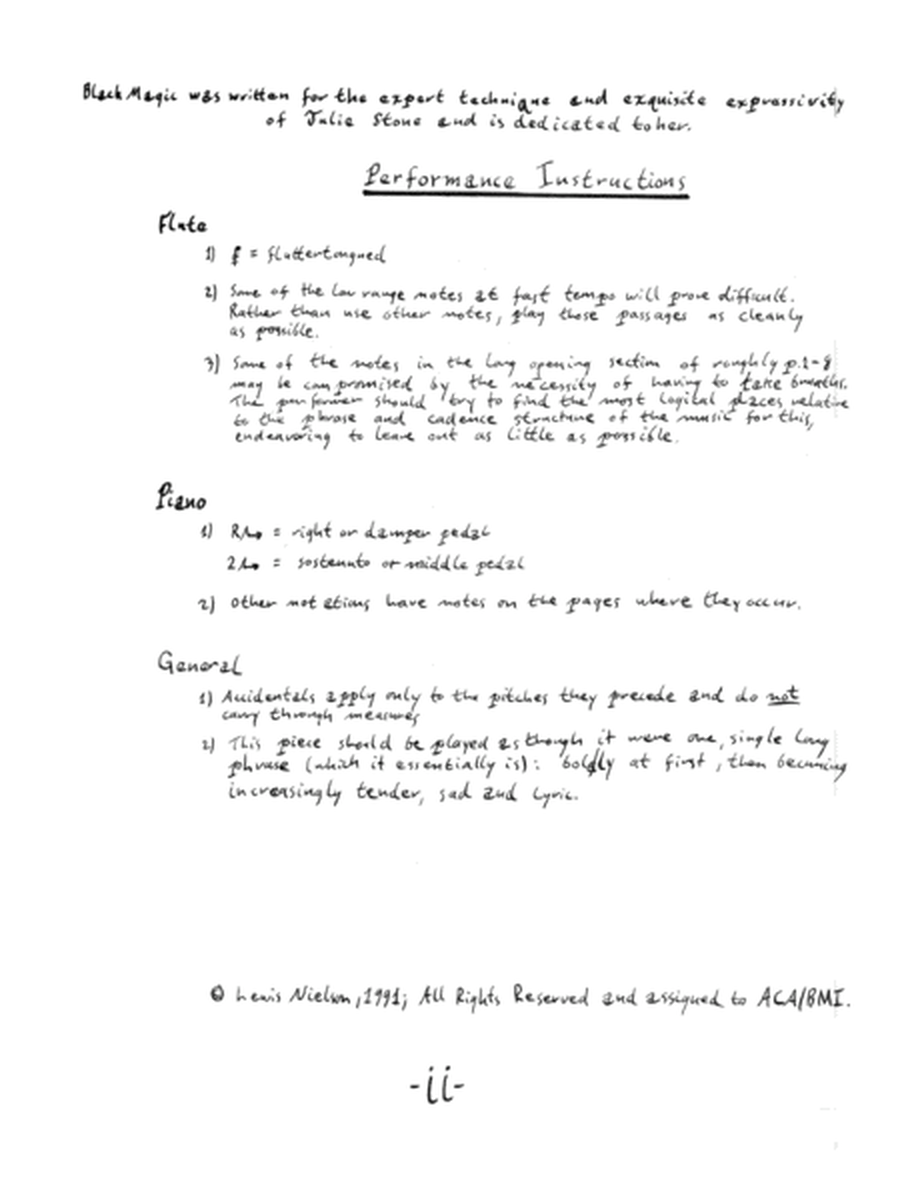 Black Magic was written for the expert technique and exquisite expressivity
of Julie Stone and is dedicated to her.
Performance Instructions
Flute
1) f = fluttertongued
2) Some of the low range notes at fast tempo will prove difficult.
Rather than use other notes, play those passages as cleanly
as possible.
3) Some of the notes in the long opening section of roughly p.1-8
may be compromised by the necessity of having to take breaths.
The performer should try to find the most logical places relative
to the phrase and cadence structure of the music for this,
endeavoring to leave out as little as possible.
Piano
1) = right or damper pedal
= sostenuto or middle pedal
2) Other notations have notes on the pages where they occur.
General
1) Accidentals apply only to the pitches they precede and do not
carry through measures
2) This piece should be played as though it were one, single long
phrase (which it essentially is): boldly at first, then becoming
increasingly tender, sad and lyric.
© Lewis Nielson, 1991; All Rights Reserved and assigned to ACA/BMI.
-ii-